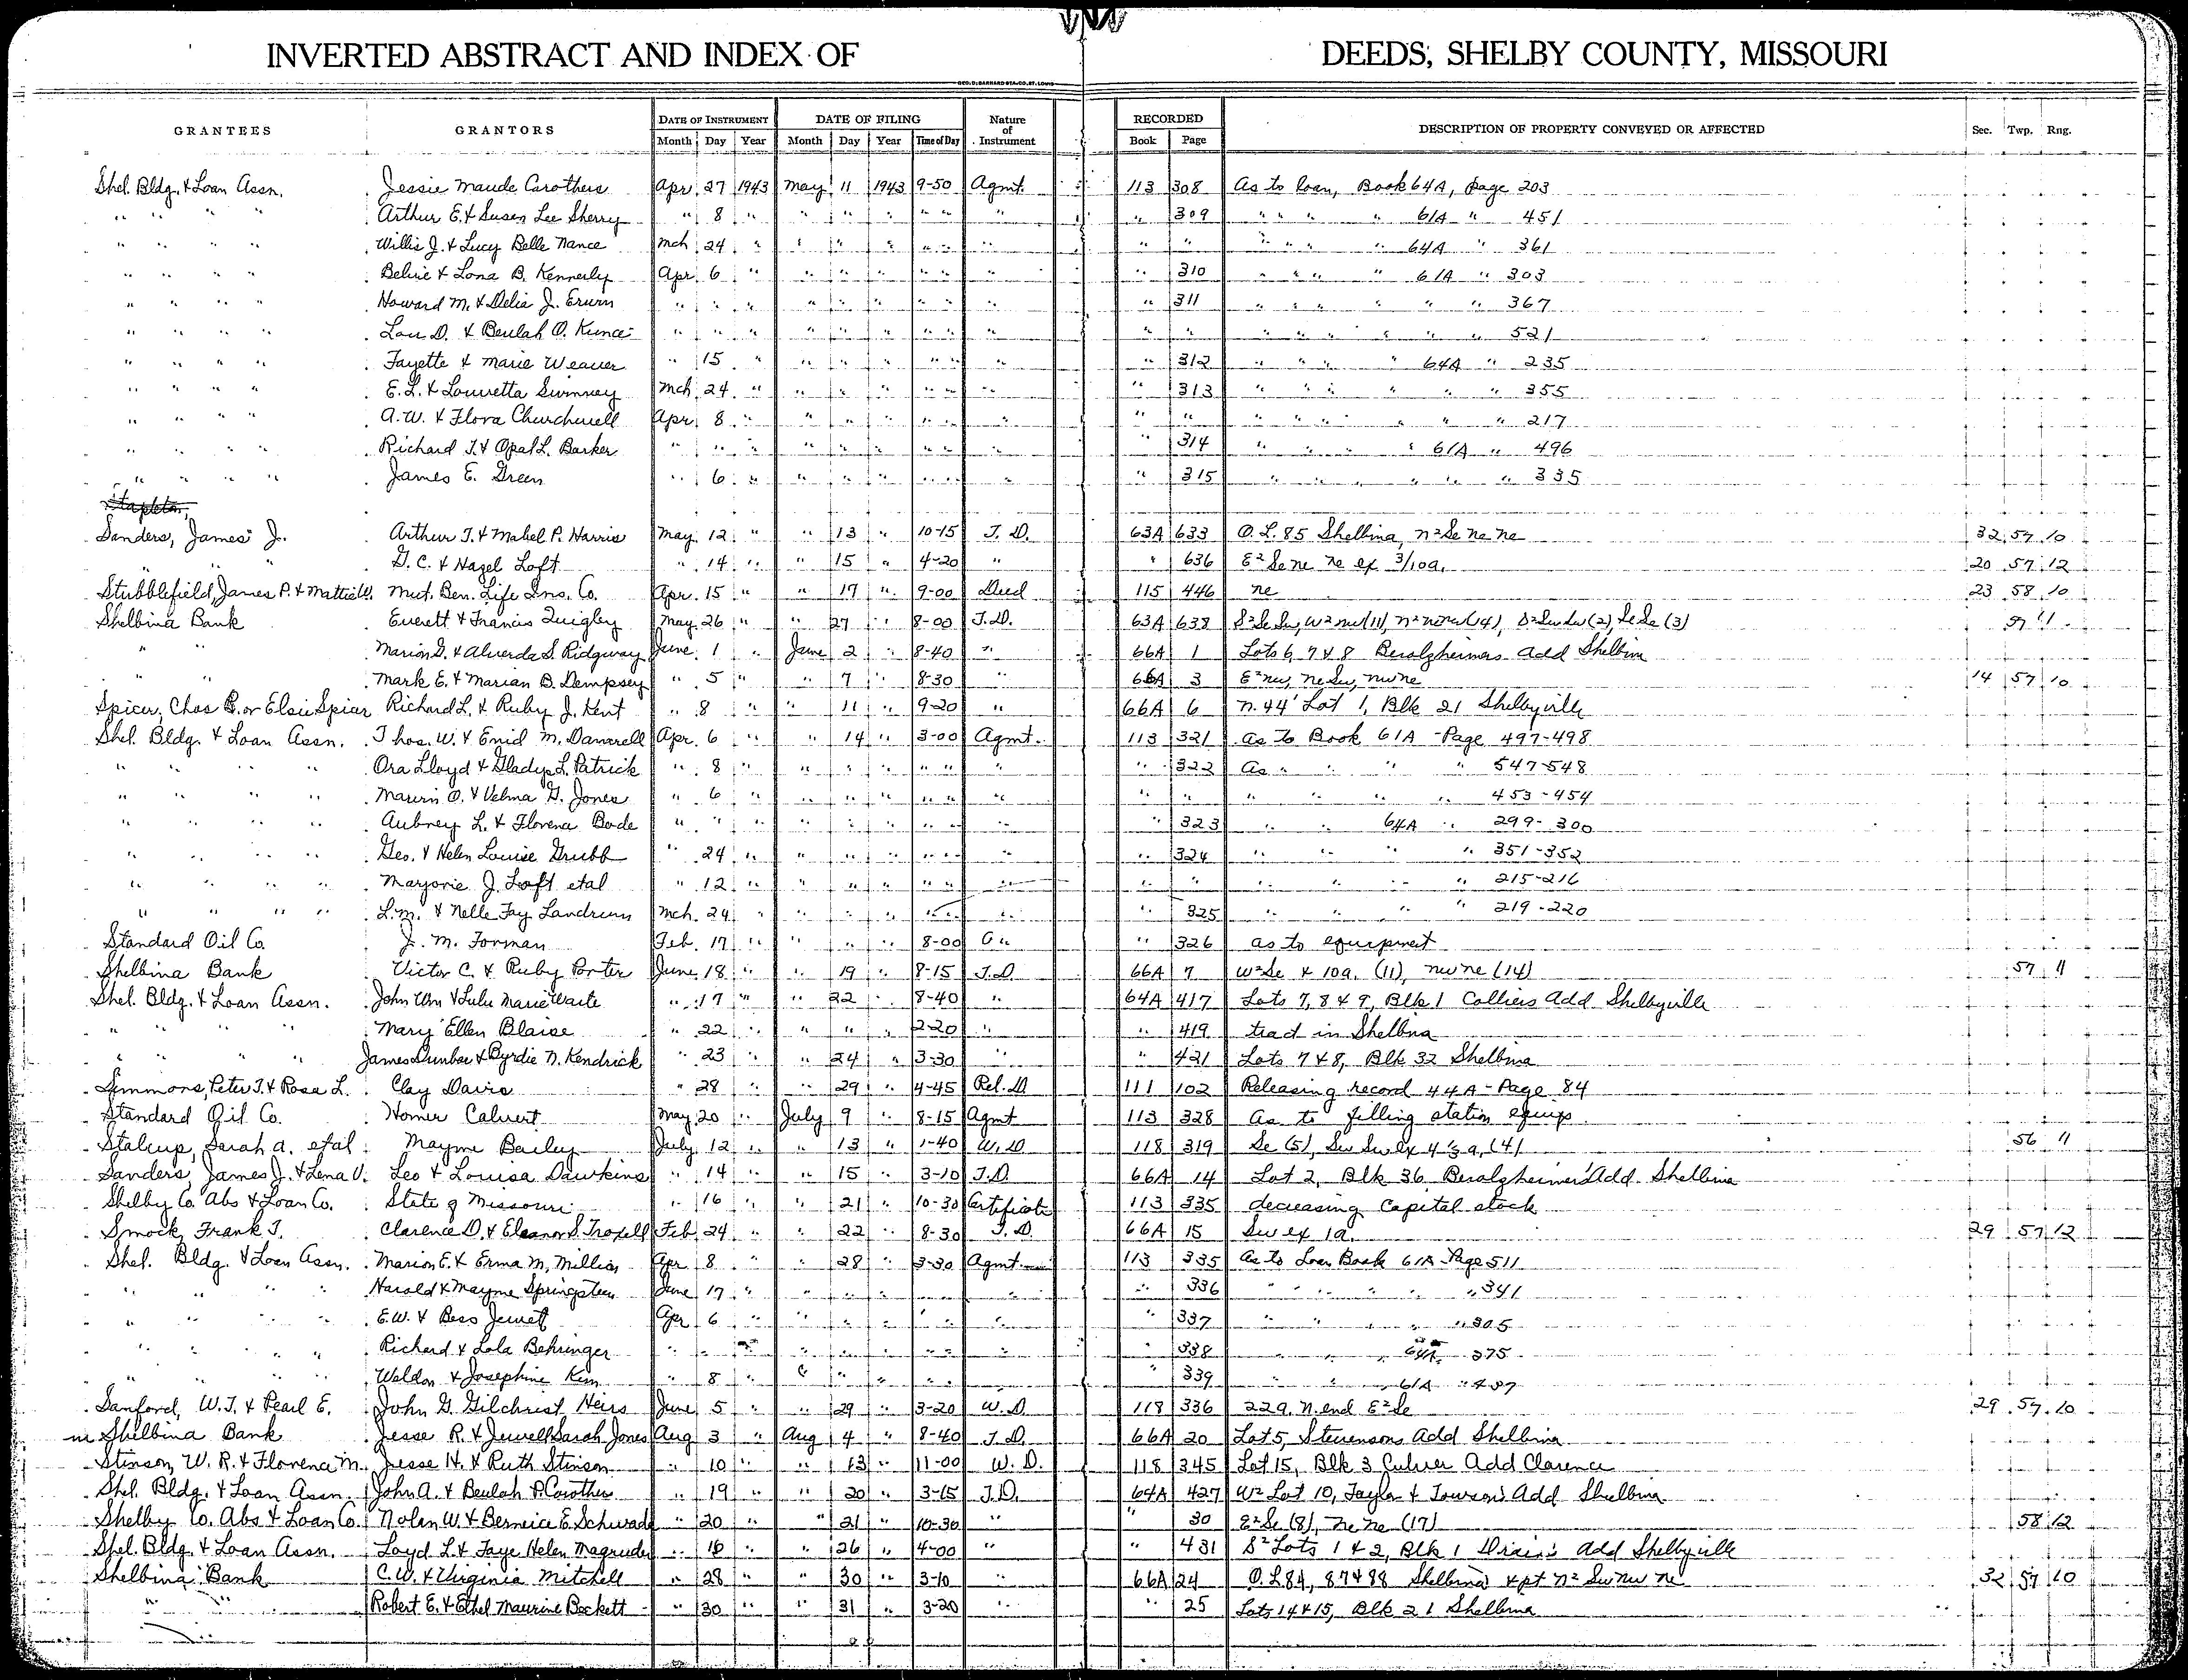 INVERTED ABSTRACT AND INDEX OF DEEDS, SHELBY COUNTY, MISSOURI
GEO. D. BARNARD STA. CO. ST. LOUIS
GRANTEES GRANTORS DATE OF INSTRUMENT DATE OF FILING Nature of Instrument RECORDED DESCRIPTION OF PROPERTY CONVEYED OR AFFECTED Sec. Twp. Rng.
Month Day Year Month Day Year Time of Day Book Page
Shel. Bldg. & Loan Assn. Jessie Maude Carothers Apr 27 1943 May 11 1943 9-50 Agmt. 113 308 As to loan, Book 64A, page 203
" " " " Arthur E. & Susan Lee Sherry " 8 " " " " " " " 309 " " " " 61A " 451
" " " " Willis J. & Lucy Belle Nance Mch 24 " " " " " " " " " " " " 64A " 361
" " " " Belvie & Lona B. Kennerly Apr. 6 " " " " " " " 310 " " " " 61A " 303
" " " " Howard M. & Delia J. Erwin " " " " " " " " " 311 " " " " " " 367
" " " " Lou D. & Beulah O. Kunce " " " " " " " " " " " " " " " " 521
" " " " Fayette & Marie Weaver " 15 " " " " " " " 312 " " " " 64A " 235
" " " " E. L. & Louvetta Swinney Mch. 24 " " " " " " " 313 " " " " " " 355
" " " " A. W. & Flora Churchwell Apr. 8 " " " " " " " " " " " " " " 217
" " " " Richard T. & Opal L. Barker " " " " " " " " " 314 " " " " 61A " 496
" " " " James E. Green " 6 " " " " " " " 315 " " " " " " 335
Stapleton,
Sanders, James J. Arthur T. & Mabel P. Harris May 12 " " 13 " 10-15 T. D. 63A 633 O. L. 85 Shelbina, N² Se ne ne 32 57 10
" " G. C. & Hazel Loft " 14 " " 15 " 4-20 " " 636 E² Se ne ne ex 3/10 a. 20 57 12
Stubblefield, James P. & Mattie W. Mut. Ben. Life Ins. Co. Apr. 15 " " 17 " 9-00 Deed 115 446 ne 23 58 10
Shelbina Bank Everett & Francis Quigley May 26 " " 27 " 8-00 T. D. 63A 638 S² Se Sw, W² nw (11), N² nw (14), S² Sw Sw (2), Se Se (3) 57 11
" " Marion G. & Alverda S. Ridgway June 1 " June 2 " 8-40 " 66A 1 Lots 6, 7 & 8 Beralzheimers Add Shelbina
" " Mark E. & Marian B. Dempsey " 5 " " 7 " 8-30 " 66A 3 E² nw, ne Sw, nw ne 14 57 10
Spicer, Chas B. or Elsie Spicer Richard L. & Ruby J. Kent " 8 " " 11 " 9-20 " 66A 6 N. 44' Lot 1, Blk 21 Shelbyville
Shel. Bldg. & Loan Assn. Thos. W. & Enid M. Damrell Apr. 6 " " 14 " 3-00 Agmt. 113 321 As to Book 61A - Page 497-498
" " " " Ora Lloyd & Gladys L. Patrick " 8 " " " " " " " 322 As " " " 547-548
" " " " Marvin O. & Velma G. Jones " 6 " " " " " " " " " " " " 453-454
" " " " Aubrey L. & Florena Bode " " " " " " " " " 323 " " 64A " 299-300
" " " " Geo. & Helen Louise Grubb " 24 " " " " " " " 324 " " " " 351-352
" " " " Marjorie J. Loft etal " 12 " " " " " " " " " " " " 215-216
" " " " L. M. & Nelle Fay Landrum Mch. 24 " " " " " " " 325 " " " " 219-220
Standard Oil Co. J. M. Forman Feb. 17 " " " " 8-00 " 326 as to equipment
Shelbina Bank Victor C. & Ruby Porter June 18 " " 19 " 8-15 T. D. 66A 7 W² Se & 10a. (11), nw ne (14) 57 11
Shel. Bldg. & Loan Assn. John Wm & Lulu Marie Waite " 17 " " 22 " 8-40 " 64A 417 Lots 7, 8 & 9, Blk 1 Colliers Add Shelbyville
" " " " Mary Ellen Blaise " 22 " " " " 2-20 " " 419 tract in Shelbina
" " " " James Dunbar & Byrdie N. Kendrick " 23 " " 24 " 3-30 " " 421 Lots 7 & 8, Blk 32 Shelbina
Simmons, Peter T. & Rosa L. Clay Davis " 28 " " 29 " 4-45 Rel. D 111 102 Releasing record 44A - Page 84
Standard Oil Co. Homer Calvert May 20 " July 9 " 8-15 Agmt 113 328 As to filling station equip.
Stalcup, Sarah A. etal Mayme Bailey July 12 " " 13 " 1-40 W. D 118 319 Se (5), Sw Sw ex 4⅓ a. (4) 56 11
Sanders, James J. & Lena V. Leo & Louisa Dawkins " 14 " " 15 " 3-10 T. D. 66A 14 Lot 2, Blk 36 Beralzheimers Add. Shelbina
Shelby Co. Abs & Loan Co. State of Missouri " 16 " " 21 " 10-30 Certificate 113 335 decreasing Capital stock
Smock, Frank T. Clarence D. & Eleanor S. Troxell Feb. 24 " " 22 " 8-30 T. D. 66A 15 Sw ex 1a. 29 57 12
Shel. Bldg. & Loan Assn. Marion E. & Erma M. Million Apr 8 " " 28 " 3-30 Agmt. 113 335 As to Loan Book 61A Page 511
" " " " Harold & Mayme Springsteen June 17 " " " " " " " 336 " " " " " 341
" " " " E. W. & Bess Jewett Apr 6 " " " " " " " 337 " " " " " 305
" " " " Richard & Lola Behringer " " " " " " " " " 338 " " " 64A 375
" " " " Weldon & Josephine Kim " 8 " " " " " " " 339 " " " 61A " 437
Sanford, W. T. & Pearl E. John G. Gilchrist Heirs June 5 " " 29 " 3-20 W. D. 118 336 22a. N. end E² Se 29 57 10
Shelbina Bank Jesse R. & Jewell Sarah Jones Aug 3 " Aug 4 " 8-40 T. D. 66A 20 Lot 5, Stevensons Add Shelbina
Stinson, W. R. & Florence M. Jesse H. & Ruth Stinson " 10 " " 13 " 11-00 W. D. 118 345 Lot 15, Blk 3 Culver Add Clarence
Shel. Bldg. & Loan Assn. John A. & Beulah P. Carothers " 19 " " 20 " 3-15 T. D. 64A 427 W² Lot 10, Taylor & Towson's Add Shelbina
Shelby Co. Abs & Loan Co. Nolan W. & Berneice E. Schwada " 20 " " 21 " 10-30 " " 30 E² Se (8), ne ne (17) 58 12
Shel. Bldg. & Loan Assn. Loyd L. & Faye Helen Magruder " 16 " " 26 " 4-00 " " 431 S² Lots 1 & 2, Blk 1 Drain's Add Shelbyville
Shelbina Bank C. W. & Virginia Mitchell " 28 " " 30 " 3-10 " 66A 24 O. L. 84, 87 & 88 Shelbina & pt N² Sw nw ne 32 57 10
" " Robert E. & Ethel Maurine Beckett " 30 " " 31 " 3-20 " " 25 Lots 14 & 15, Blk 21 Shelbina